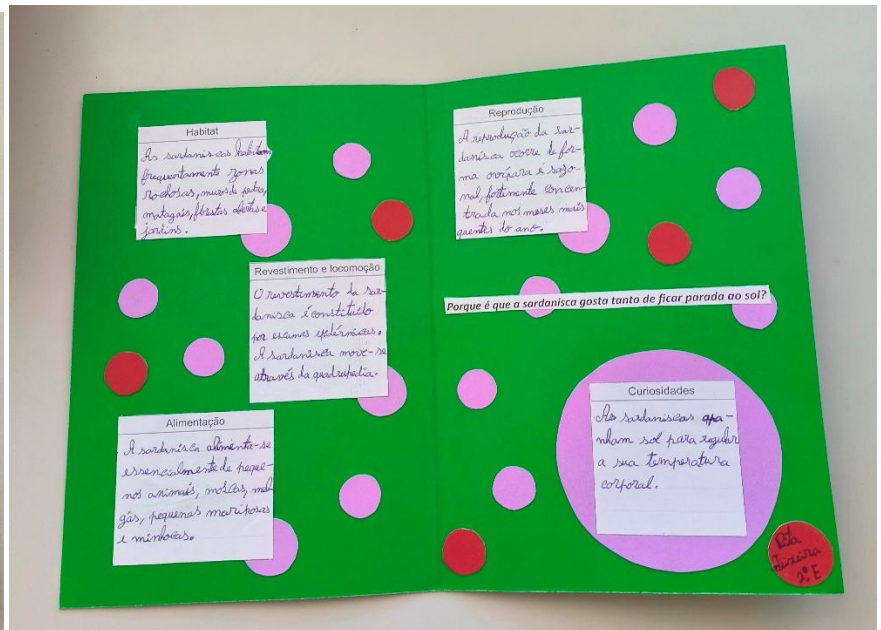 Habitat
As sardaniscas habitam
frequentamente zonas
rochosas, muros de pedra,
matagais, florestas abertas e
jardins.
Revestimento e locomoção
O revestimento da sar-
danisca é constituído
por escamas epidérmicas.
A sardanisca move-se
através da quadrupedia.
Alimentação
A sardanisca alimenta-se
essencialmente de peque-
nos animais, moscas, mel
gas, pequenas mariposas
e minhocas.
Reprodução
A reprodução da sar-
danisca ocorre de for-
ma ovípara e sazo-
nal, fortemente concen-
trada nos meses mais
quentes do ano.
Porque é que a sardanisca gosta tanto de ficar parada ao sol?
Curiosidades
As sardaniscas apa-
nham sol para regular
a sua temperatura
corporal.
Rita
Teixeira
2º E